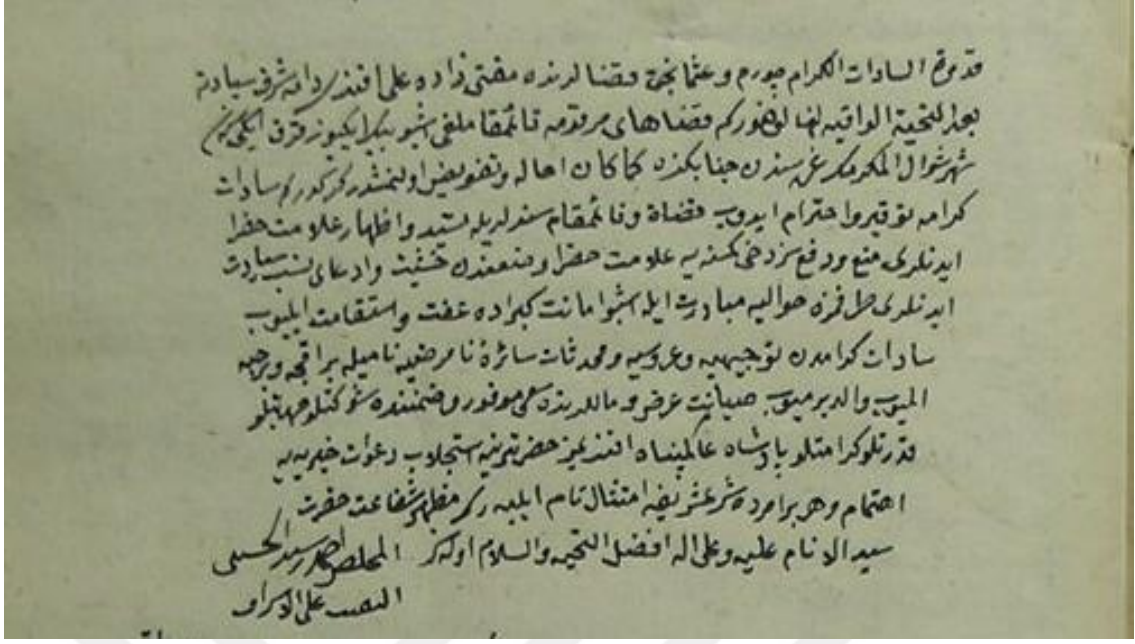 قدوة السادات الكرام چورم و عثمانجق قضالرنده مفتی زاده علی افندی دام شرف سیادته
بعد التحیة الوافیه انها اولنور که قضاهای مرقومه قائمقاملغی اشبو بیك ایکیوز قرق ایکی
شهر شوال المکرم غره سندن جنابکزه کما کان احاله و تفویض اولنمشدر کرکدر که سادات
کرامه توقیر و احترام ایدوب قضاة و قائمقام سندلریله مستند و اظهار علامت خضرا
ایدنلری منع و دفع نزد خی کمسنه یه علامت خضرا وضعندن و ادعای نسب سیادت
ایدنلری طرفمزه حوالیه مبادرت ایله اشبو امانت کبراده عفت و استقامت ایلیوب
سادات کرامدن توجیهیه و عروسیه و محدثات سائره نامرضیه نامیله بر اقچه و بر حبه
المیوب و الدیرمیوب صیانت عرض و ماللرنده سعی موفور و ضمننده شوکتلو مهابتلو
قدرتلو کرامتلو پادشاه عالمپناه افندیمز حضرتلرینه استجلاب دعوات خیریه یه
اهتمام و هر بر امرده شرع شریفه امتثال تام ایلیه سز که مظهر شفاعت حضرت
سید الانام علیه و علی اله افضل التحیه و السلام اوله سز المخلص السید الحسینی
النقیب علی الاشراف